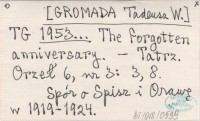 [GROMADA Tadeusz W.]
TG 1953... The forgotten
anniversary.. - Tatrz.
Orzeł 6, nr 3: 3, 8.
Spór o Spisz i Orawę
w 1919-1924.